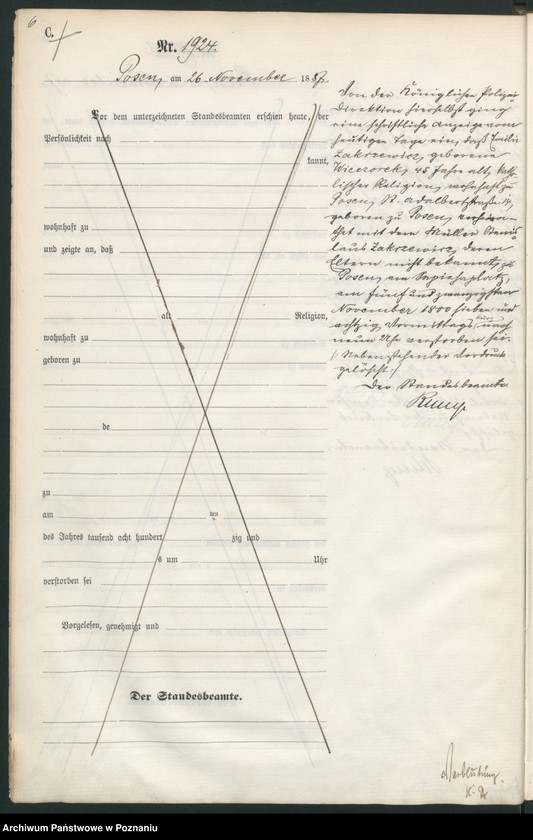 6
C.
Nr. 1924.
Posen, am 26 November 1887.
Vor dem unterzeichneten Standesbeamten erschien heute, der
Persönlichkeit nach
kannt,
wohnhaft zu
und zeigte an, daß
alt Religion,
wohnhaft zu
geboren zu
de
zu
am ten
des Jahres tausend acht hundert zig und
s um Uhr
verstorben sei
Vorgelesen, genehmigt und
Der Standesbeamte.
Von der Königlichen Polizei
Direktion hierselbst ging
eine schriftliche Anzeige vom
heutigen Tage ein, daß Emilie
Zakrzewicz, geborene
Wieczorek, 45 Jahre alt, katho-
lischer Religion, wohnhaft zu
Posen, St. Adalbertstraße
geboren zu Posen, verheira-
thet mit dem Müller Stanis
laus Zakrzewicz, deren
Eltern nicht bekannt, zu
Posen, am Sapiehaplatz,
am fünf und zwanzigsten
November 1800 sieben und
achtzig Vormittags kurz nach
neun Uhr verstorben sei.
(Nebenstehender Vordruck
gelöscht.)
Der Standesbeamte
Verblutung.
Archiwum Państwowe w Poznaniu